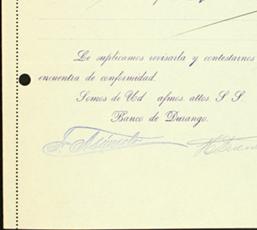 Le suplicamos revisarla y contestarnos
encuentra de conformidad.
Somos de Ud afmos. attos. S. S.
Banco de Durango.